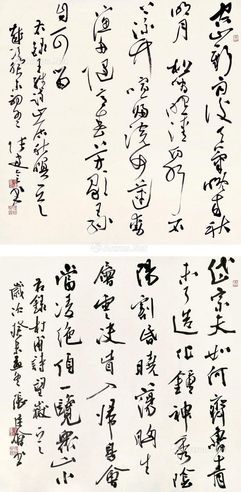 空山新雨後天氣晚來秋
明月松間照清泉石
上流竹喧歸浣女蓮動
下漁舟隨意春芳歇王孫
自可留
右錄王維詩山居秋暝一首
岱宗夫如何齊魯青
未了造化鍾神秀陰
陽割昏曉蕩胸生
層雲決眥入歸鳥會
當凌絕頂一覽衆山小
右錄杜甫詩望嶽一首
歲次癸未